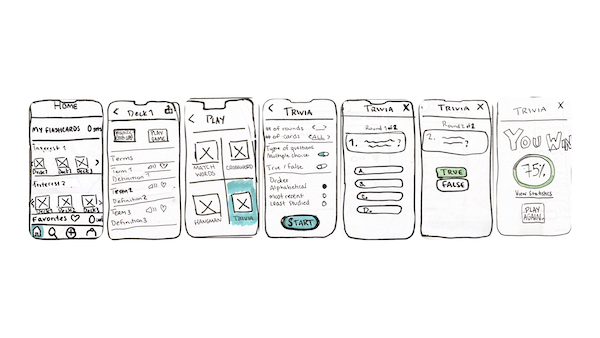 HOME
MY FLASHCARDS 0 pts
Interest 1
Deck1 Deck2 Deck3
Interest 2
Deck1 Deck2 Deck3
Favorites
Deck 1
PLAY GAME
Terms
Term 1
Definition 1
Term 2
Definition 2
Term 3
Definition 3
PLAY
MATCH WORDS
CROSSWORD
HANGMAN
TRIVIA
TRIVIA
# of rounds
# of cards <ALL>
Type of questions
Multiple choice
True / False
Order
Alphabetical
Most recent
Least studied
START
TRIVIA X
Round 1 of 2
1. ?
A.
B.
C.
D.
TRIVIA X
Round 2 of 2
2. ?
TRUE
FALSE
TRIVIA X
YOU WIN
75%
View Statistics
PLAY AGAIN